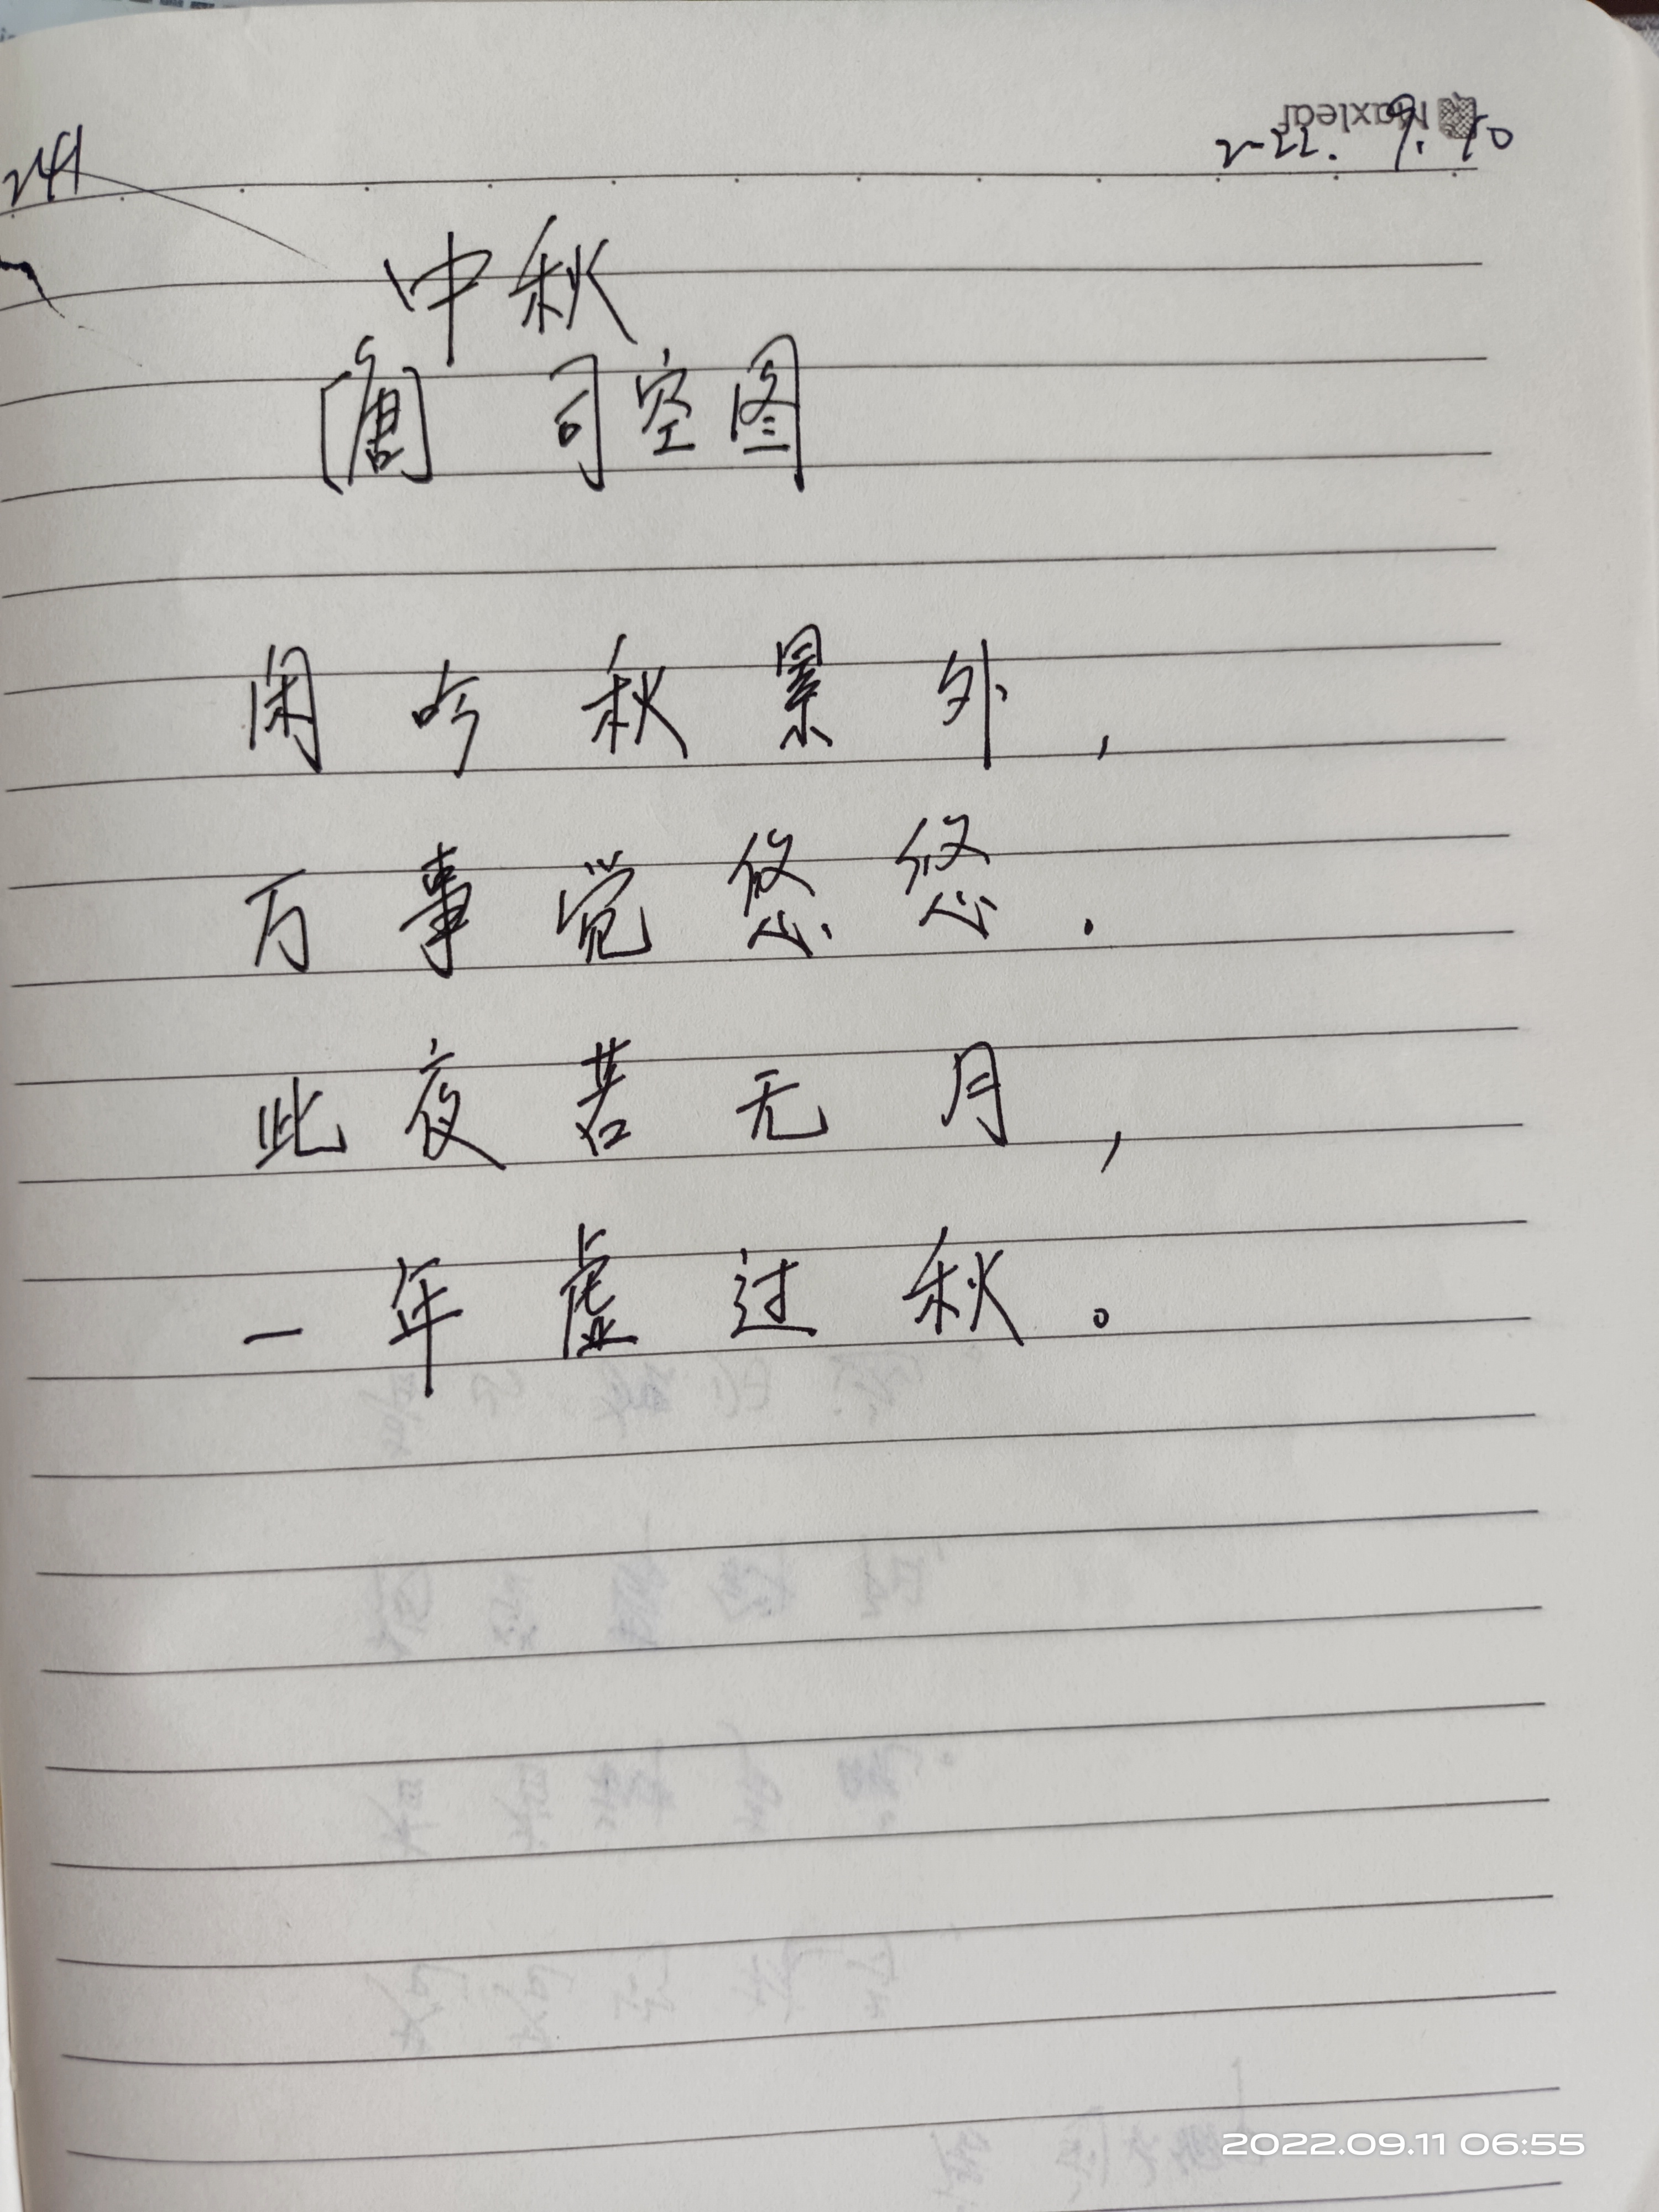 Maxleaf
241 2022. 9. 10
中秋
[唐] 司空图
闲吟秋景外,
万事觉悠悠.
此夜若无月,
一年虚过秋。
2022.09.11 06:55